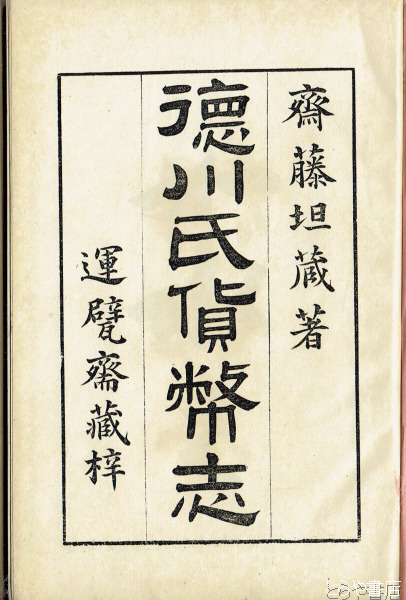 齋藤坦蔵著
德川氏貨幣志
運甓齋藏梓
とらや書店